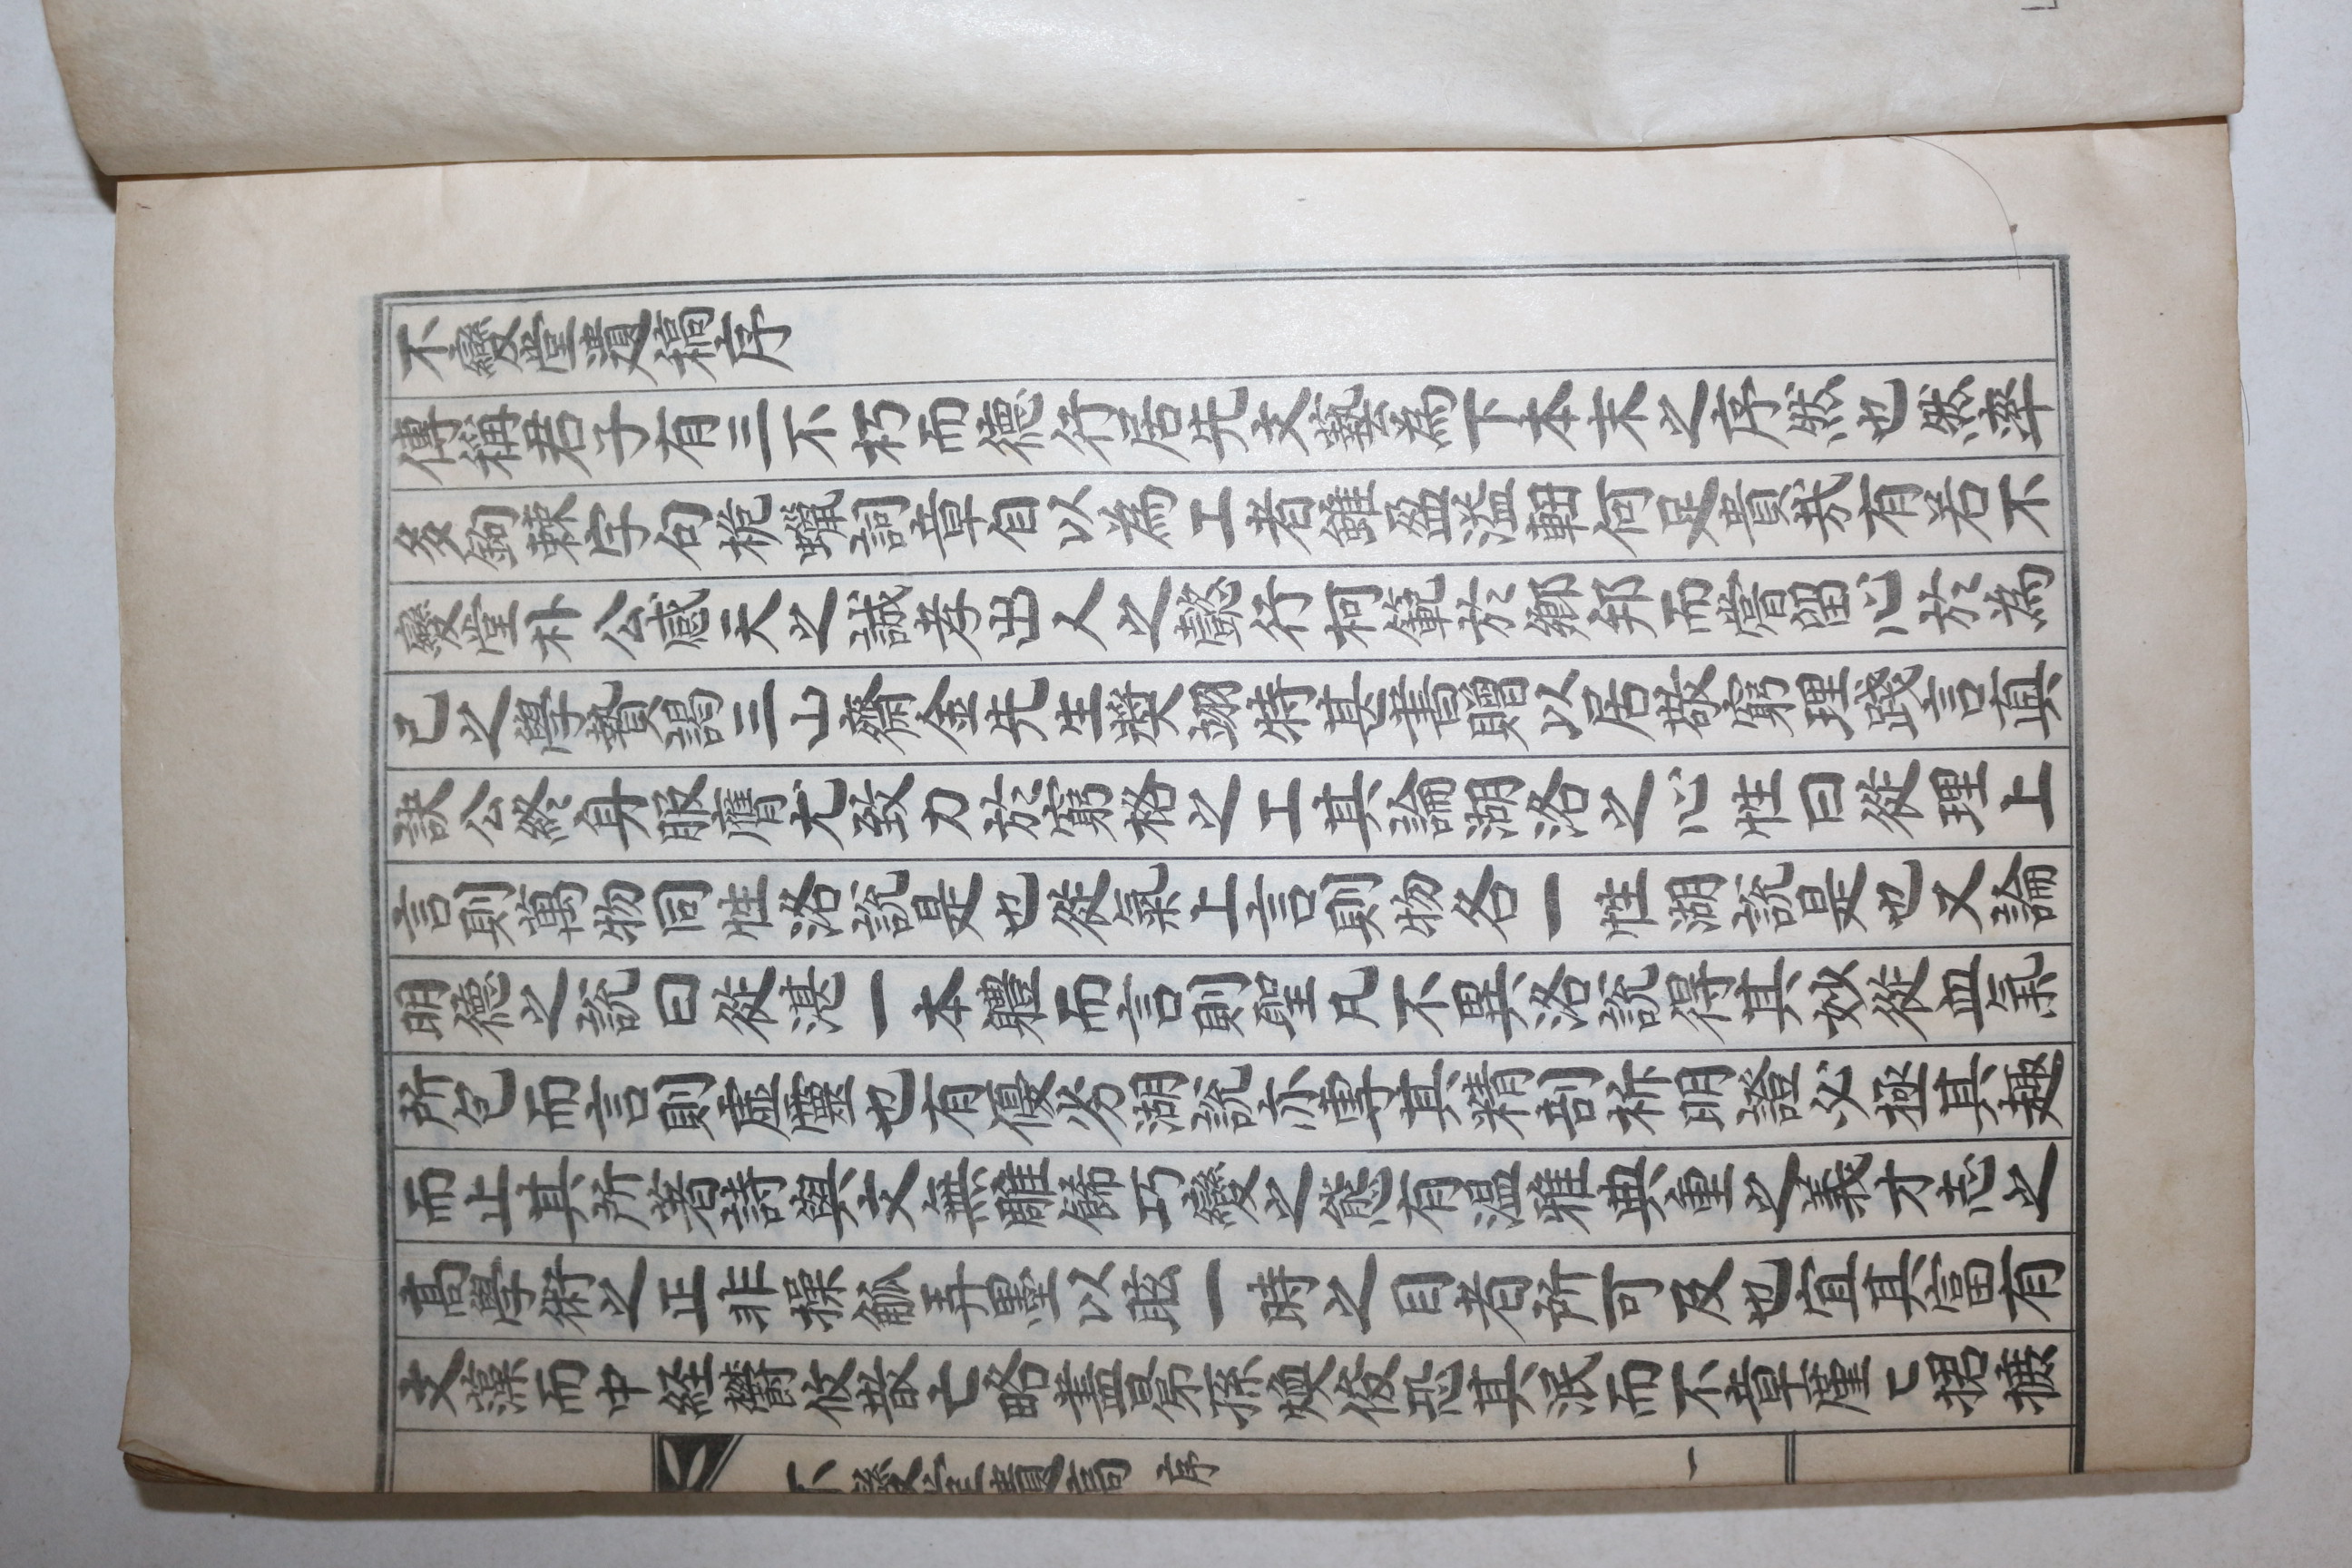 不變堂遺稿序
傳稱君子有三不朽而德行居先文藝為下本末之序然也然率
多鉤棘字句梔蠟詞章自以為工者雖盈溢軸何足貴哉有若不
變堂朴公感天之誠孝出人之懿行柯範於鄉邦而嘗留心於為
己之學贄謁三山齋金先生獎翊特甚書贈以居敬窮理踐言眞
訣公終身服膺尤致力於窮格之工其論湖洛之心性曰從理上
言則萬物同性洛說是也從氣上言則物各一性湖說是也又論
明德之說曰從湛一本軆而言則聖凡不異洛說得其妙從血氣
所包而言則虛靈也有優劣湖說亦專其精剖柝明證必極其趣
而止其所著詩與文無雕餙巧變之態有温雅典重之義才志之
高學術之正非操觚弄墨以眩一時之目者所可及也宜其富有
文藻而中経欝攸散亡略盡晜孫煥俊恐其泯而不章廑〻捃摭
不變堂遺稿 序 一